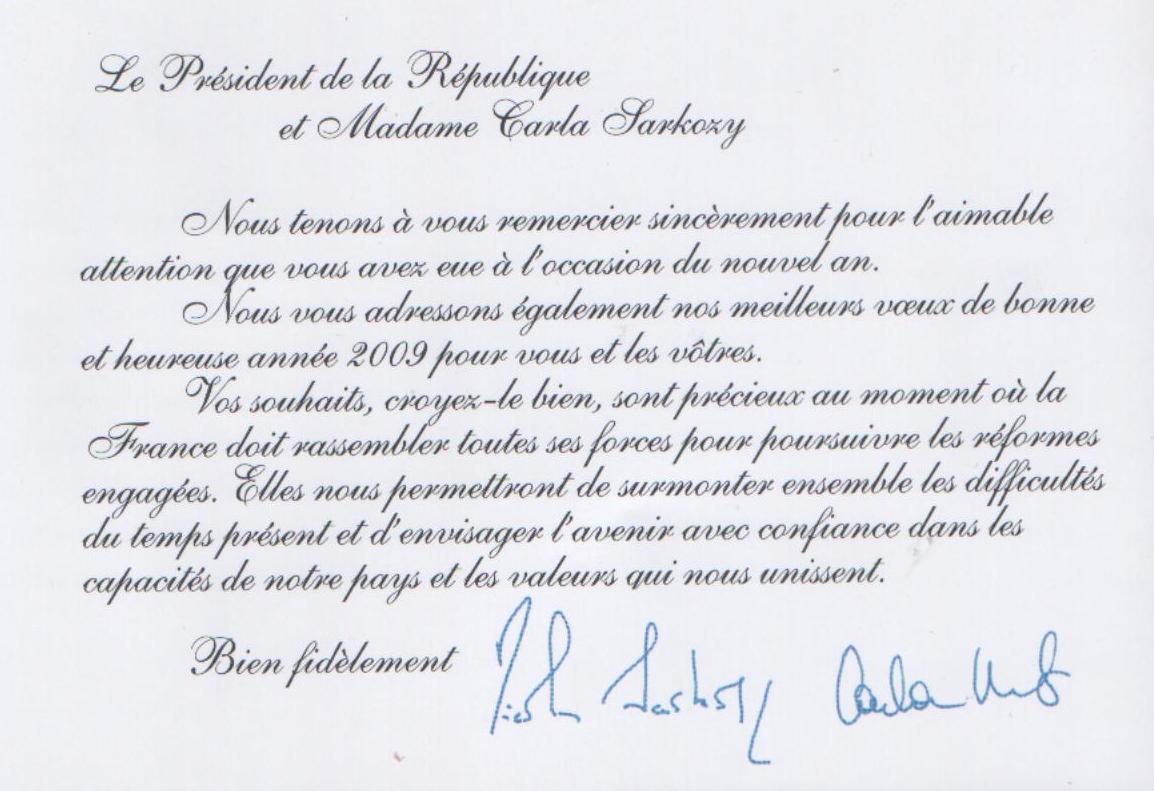 Le Président de la République
et Madame Carla Sarkozy
Nous tenons à vous remercier sincèrement pour l'aimable
attention que vous avez eue à l'occasion du nouvel an.
Nous vous adressons également nos meilleurs vœux de bonne
et heureuse année 2009 pour vous et les vôtres.
Vos souhaits, croyez-le bien, sont précieux au moment où la
France doit rassembler toutes ses forces pour poursuivre les réformes
engagées. Elles nous permettront de surmonter ensemble les difficultés
du temps présent et d'envisager l'avenir avec confiance dans les
capacités de notre pays et les valeurs qui nous unissent.
Bien fidèlement